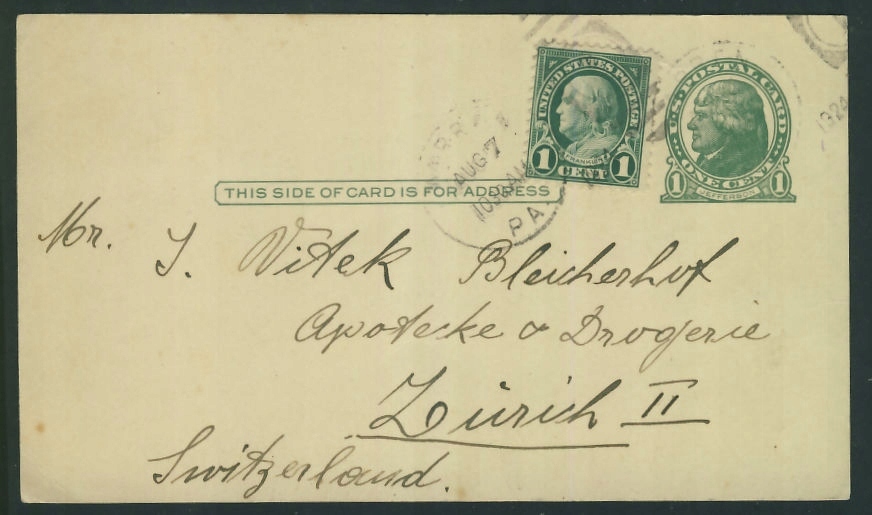 UNITED STATES POSTAGE
1 FRANKLIN 1
CENT
U.S. POSTAL CARD
ONE CENT
1 JEFFERSON 1
1924
AUG 7
PA.
THIS SIDE OF CARD IS FOR ADDRESS
Mr. J. Vitek Bleicherhof
Apotecke & Drogerie
Zürich II
Switzerland.